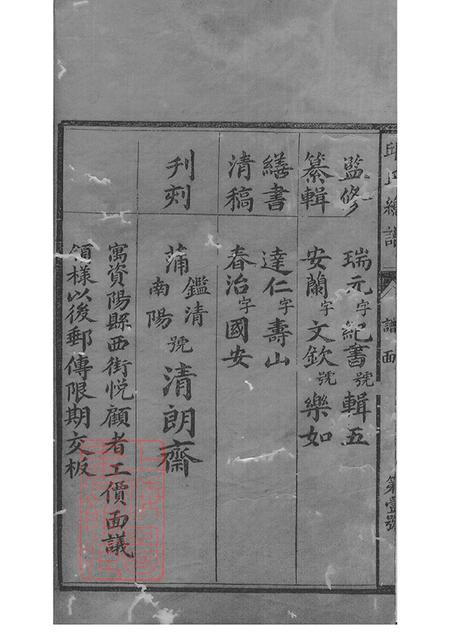 邱氏總譜
譜面
第壹號
監修 瑞元字紀書號輯五
纂輯 安蘭字文欽號樂如
繕書 達仁字壽山
清稿 春治字國安
刋刻 蒲鑑清南陽號清朗齋
寓資陽縣西街悅顧者工價面議
領樣以後郵傳限期交板